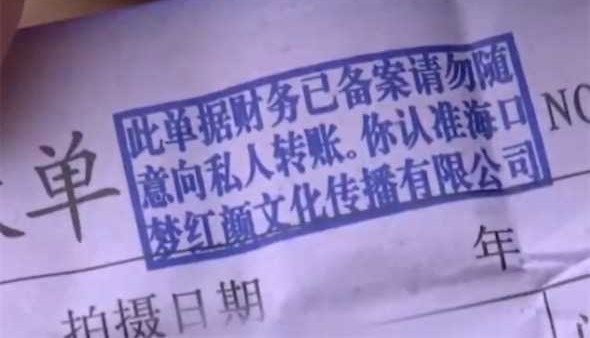 此单据财务已备案请勿随
意向私人转账。你认准海口
梦红颜文化传播有限公司
单
NO
年
拍摄日期